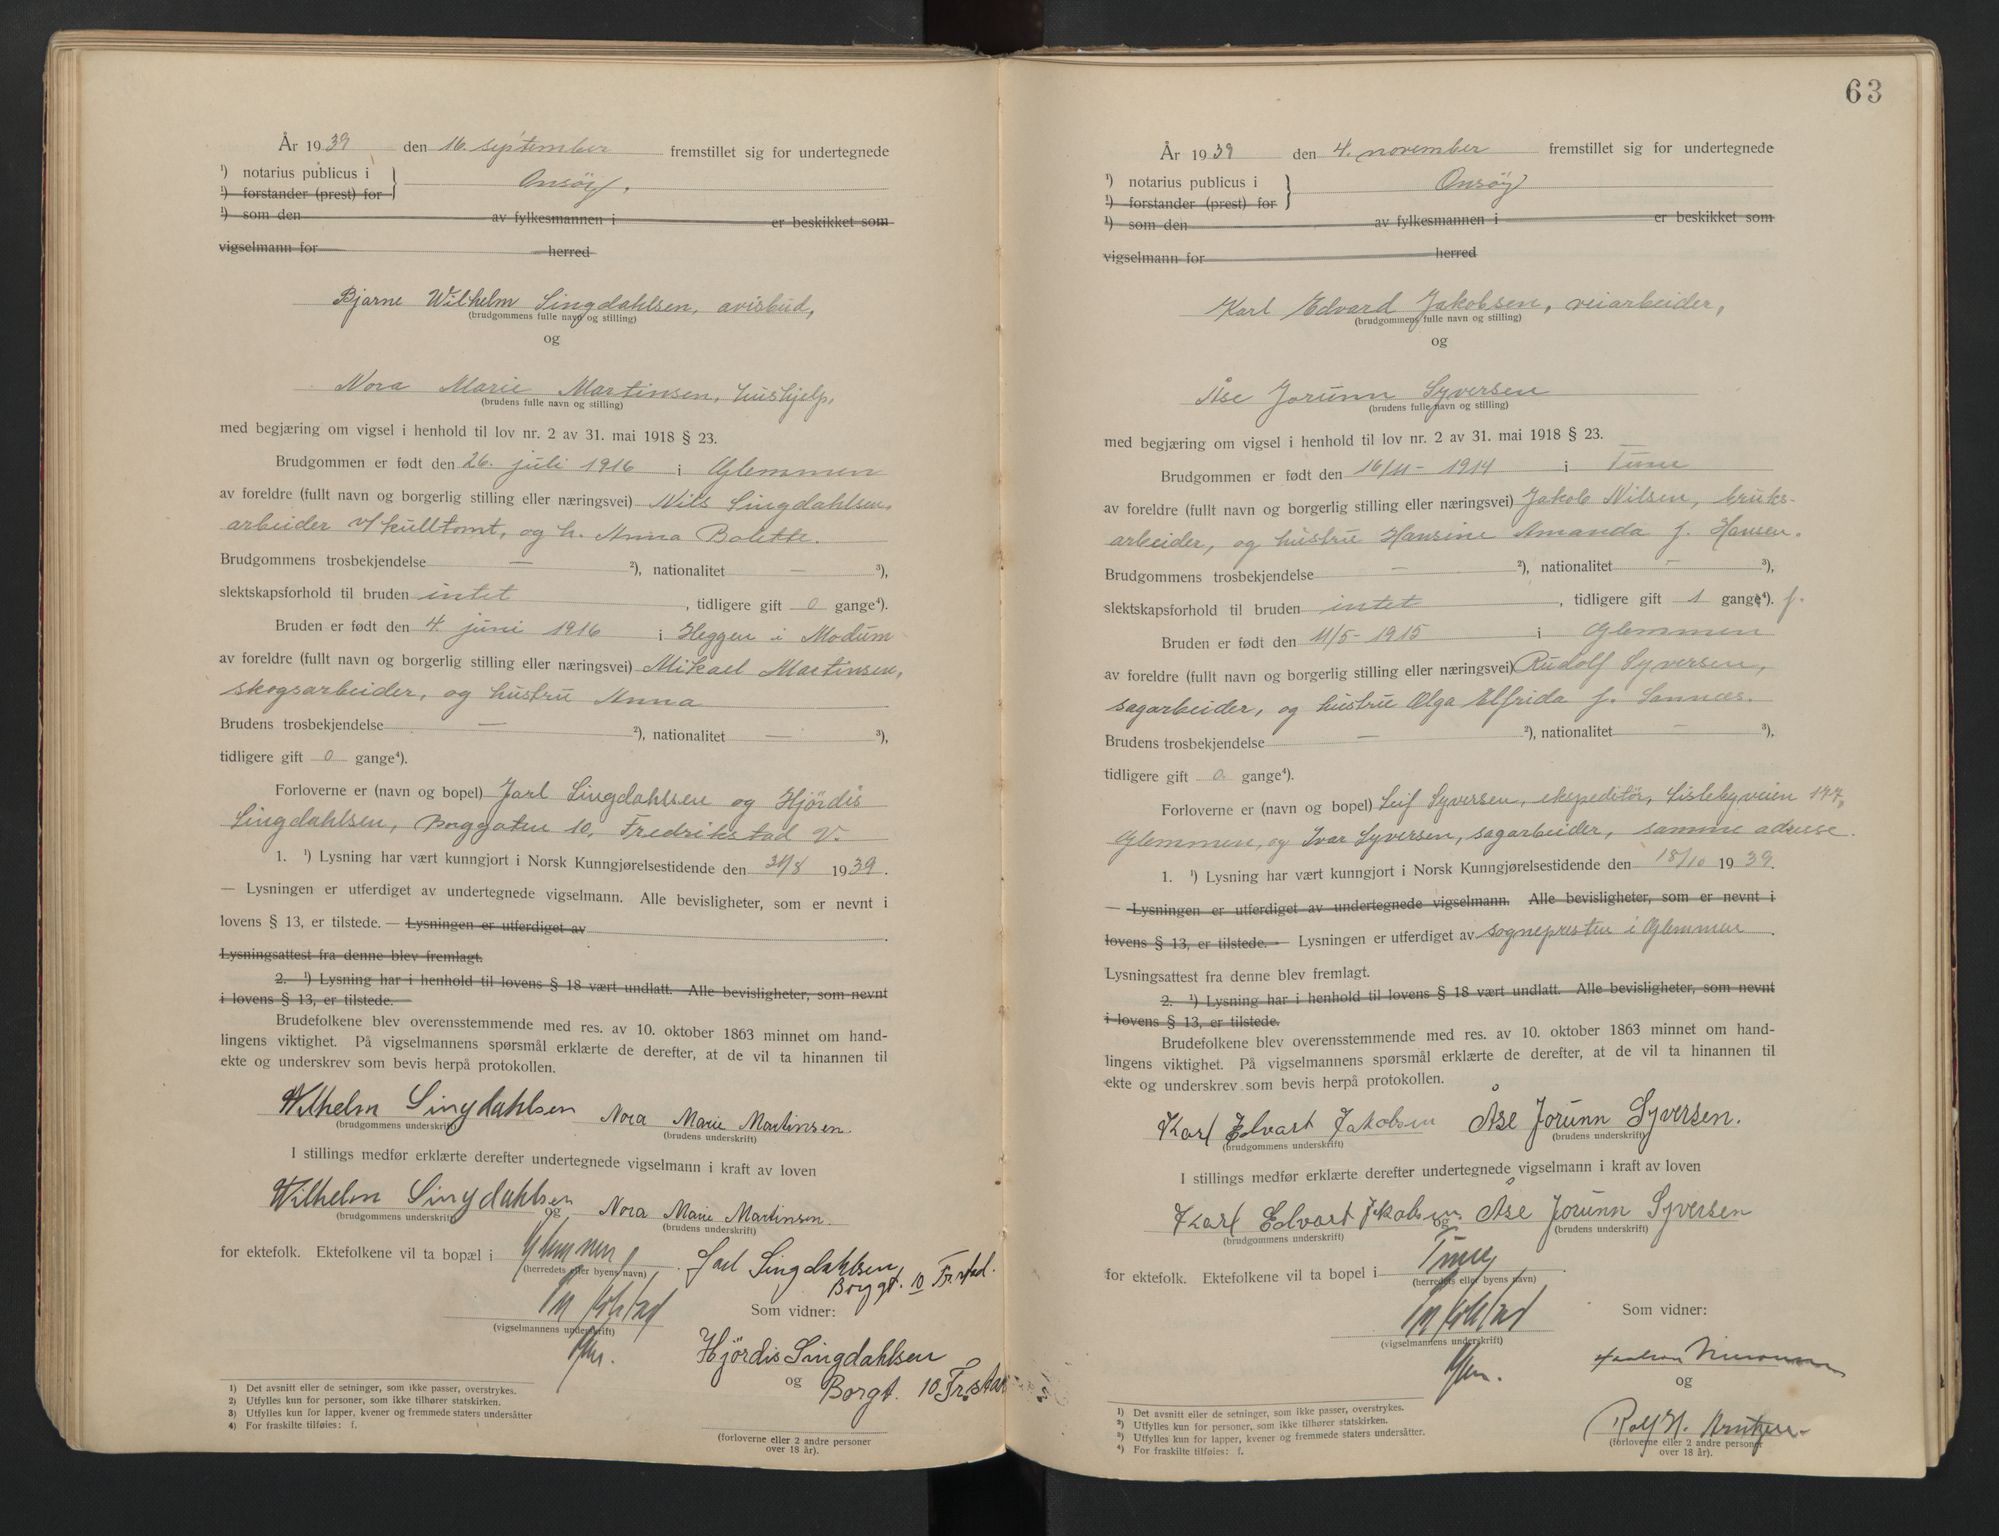 År 1939 den 16. september fremstillet sig for undertegnede
¹) notarius publicus i
¹) forstander (prest) for } Onsøy.
¹) som den av fylkesmannen i er beskikket som
vigselmann for herred
Bjarne Wilhelm Lingdahlsen, avisbud,
(brudgommens fulle navn og stilling)
og
Nora Marie Martinsen, hushjelp,
(brudens fulle navn og stilling)
med begjæring om vigsel i henhold til lov nr. 2 av 31. mai 1918 § 23.
Brudgommen er født den 26. juli 1916 i Glemmen
av foreldre (fullt navn og borgerlig stilling eller næringsvei) Nils Lingdahlsen,
arbeider v/ kulltomt, og h. Anna Bolette.
Brudgommens trosbekjendelse — ²), nationalitet — ³),
slektskapsforhold til bruden intet, tidligere gift 0 gange⁴).
Bruden er født den 4. juni 1916 i Heggen i Modum
av foreldre (fullt navn og borgerlig stilling eller næringsvei) Mikael Martinsen,
skogsarbeider, og hustru Anna
Brudens trosbekjendelse — ²), nationalitet — ³),
tidligere gift 0 gange⁴).
Forloverne er (navn og bopel) Jarl Lingdahlsen og Hjördis
Lingdahlsen, Borggaten 10, Fredrikstad V.
1. ¹) Lysning har vært kunngjort i Norsk Kunngjørelsestidende den /8 1939.
— Lysningen er utferdiget av undertegnede vigselmann. Alle bevisligheter, som er nevnt i
lovens § 13, er tilstede. — Lysningen er utferdiget av
Lysningsattest fra denne blev fremlagt.
2. ¹) Lysning har i henhold til lovens § 18 vært undlatt. Alle bevisligheter, som nevnt
i lovens § 13, er tilstede. —
Brudefolkene blev overensstemmende med res. av 10. oktober 1863 minnet om hand-
lingens viktighet. På vigselmannens spørsmål erklærte de derefter, at de vil ta hinannen til
ekte og underskrev som bevis herpå protokollen.
Wilhelm Lingdahlsen Nora Marie Martinsen.
(brudgommens underskrift) (brudens underskrift)
I stillings medfør erklærte derefter undertegnede vigselmann i kraft av loven
Wilhelm Lingdahlsen og Nora Marie Martinsen.
(brudgommens underskrift) (brudens underskrift)
for ektefolk. Ektefolkene vil ta bopæl i Glemmen. Jarl Lingdahlsen
(herredets eller byens navn) Borggt. 10 Fr.stad.
Som vidner:
(vigselmannens underskrift)
Hjördis Lingdahlsen
og Borgt. 10 Fr.stad
(forloverne eller 2 andre personer
over 18 år).
1) Det avsnitt eller de setninger, som ikke passer, overstrykes.
2) Utfylles kun for personer, som ikke tilhører statskirken.
3) Utfylles kun for lapper, kvener og fremmede staters undersåtter
4) For fraskilte tilføies: f.
63
År 1939 den 4. november fremstillet sig for undertegnede
¹) notarius publicus i
¹) forstander (prest) for } Onsøy
¹) som den av fylkesmannen i er beskikket som
vigselmann for herred
Karl Edvard Jakobsen, veiarbeider,
(brudgommens fulle navn og stilling)
og
Åse Jorunn Syversen
(brudens fulle navn og stilling)
med begjæring om vigsel i henhold til lov nr. 2 av 31. mai 1918 § 23.
Brudgommen er født den 16/11 - 1914 i Tune
av foreldre (fullt navn og borgerlig stilling eller næringsvei) Jakob Nilsen, bruks-
arbeider, og hustru Hansine Amanda f. Hansen.
Brudgommens trosbekjendelse — ²), nationalitet — ³),
slektskapsforhold til bruden intet, tidligere gift 1 gange⁴). f.
Bruden er født den 11/5 - 1915 i Glemmen
av foreldre (fullt navn og borgerlig stilling eller næringsvei) Rudolf Syversen,
sagarbeider, og hustru Olga Elfrida f. Sannæs.
Brudens trosbekjendelse — ²), nationalitet — ³),
tidligere gift 0. gange⁴).
Forloverne er (navn og bopel) Leif Syversen, ekspeditör, Lislebyveien 177,
Glemmen, og Ivar Syversen, sagarbeider, samme adresse.
1. ¹) Lysning har vært kunngjort i Norsk Kunngjørelsestidende den 18/10 1939.
— Lysningen er utferdiget av undertegnede vigselmann. Alle bevisligheter, som er nevnt i
lovens § 13, er tilstede. — Lysningen er utferdiget av sognepresten i Glemmen.
Lysningsattest fra denne blev fremlagt.
2. ¹) Lysning har i henhold til lovens § 18 vært undlatt. Alle bevisligheter, som nevnt
i lovens § 13, er tilstede.
Brudefolkene blev overensstemmende med res. av 10. oktober 1863 minnet om hand-
lingens viktighet. På vigselmannens spørsmål erklærte de derefter, at de vil ta hinannen til
ekte og underskrev som bevis herpå protokollen.
Karl Edvart Jakobsen Åse Jorunn Syversen.
(brudgommens underskrift) (brudens underskrift)
I stillings medfør erklærte derefter undertegnede vigselmann i kraft av loven
Karl Edvart Jakobsen og Åse Jorunn Syversen
(brudgommens underskrift) (brudens underskrift)
for ektefolk. Ektefolkene vil ta bopel i Tune.
(herredets eller byens navn)
Som vidner:
(vigselmannens underskrift)
og
Rolf H. Arntzen
(forloverne eller 2 andre personer
over 18 år).
¹) Det avsnitt eller de setninger, som ikke passer, overstrykes.
²) Utfylles kun for personer, som ikke tilhører statskirken.
³) Utfylles kun for lapper, kvener og fremmede staters undersåtter.
⁴) For fraskilte tilføies: f.